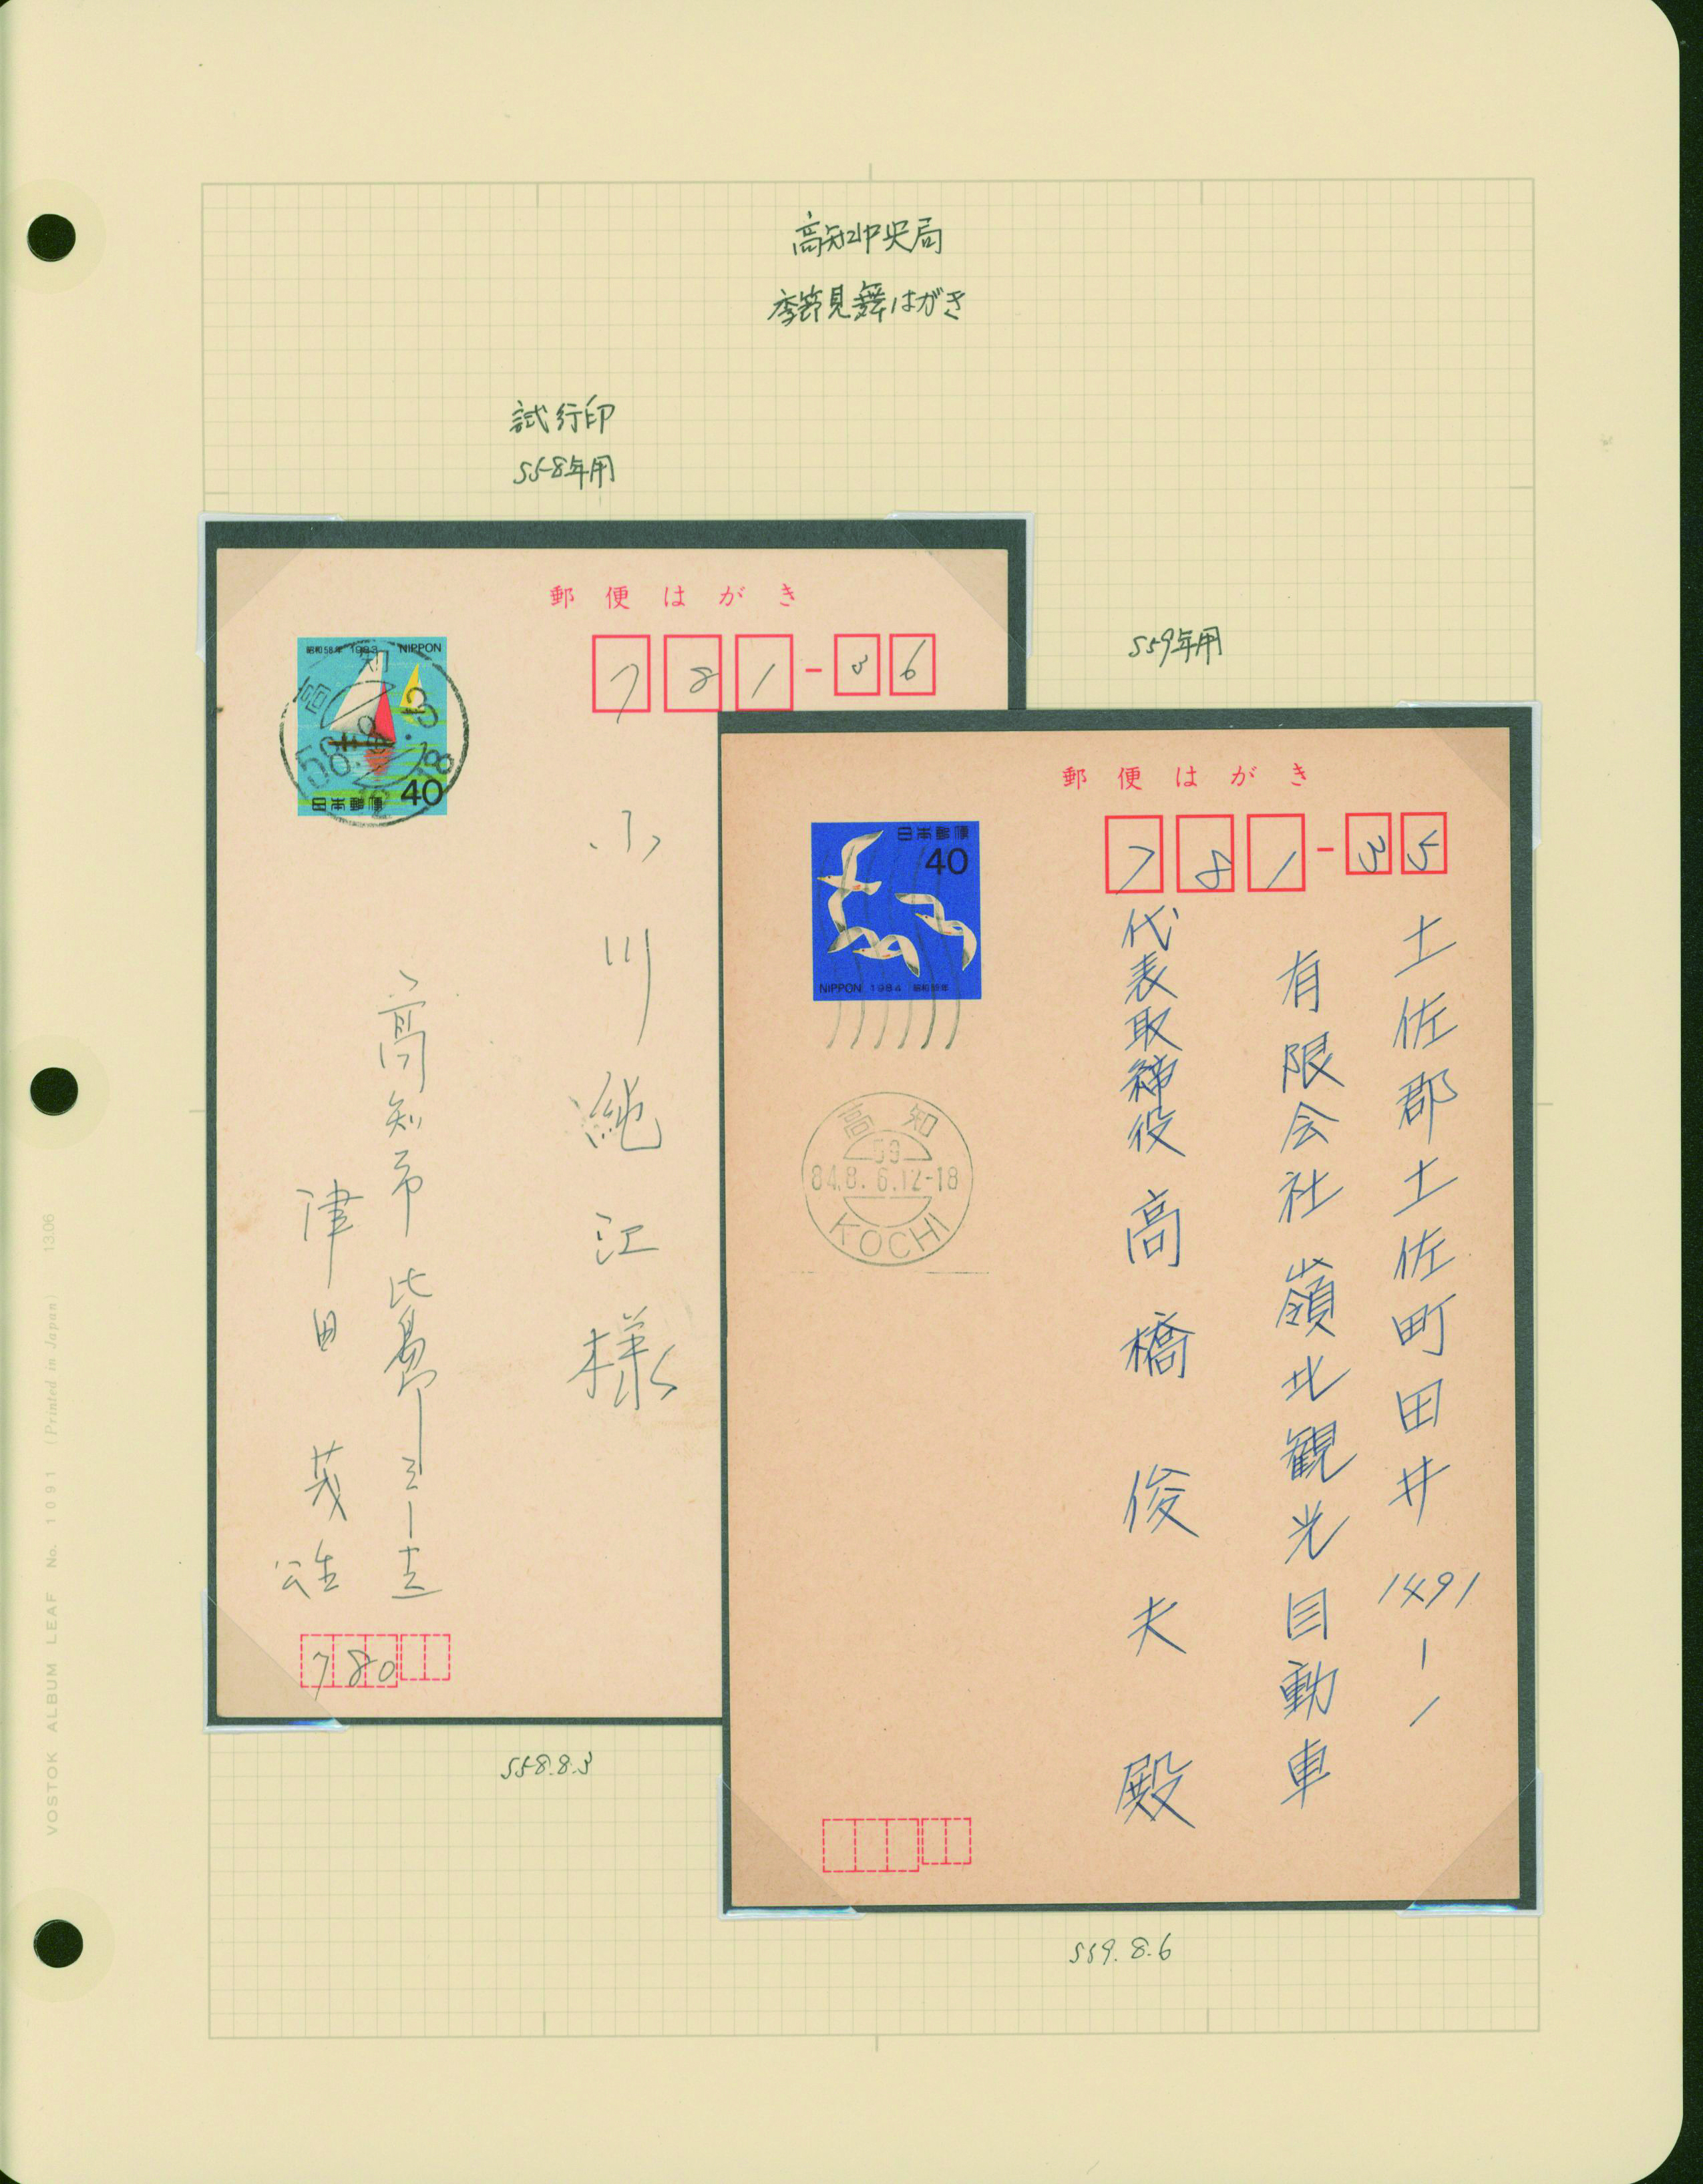 高知中央局
季節見舞はがき
試行印
S58年用
郵便はがき
昭和58年 1983 NIPPON
日本郵便 40
高知
58.8.3
12-18
781-36
小川
江様
高知市比島
津田茂
780
S58.8.3
S59年用
郵便はがき
日本郵便
40
NIPPON 1984 昭和59年
高知
59
84.8.6.12-18
KOCHI
781-35
土佐郡土佐町田井1491-1
有限会社嶺北観光自動車
代表取締役 高橋俊夫殿
S59.8.6
VOSTOK ALBUM LEAF No. 1091 (Printed in Japan) 13.06